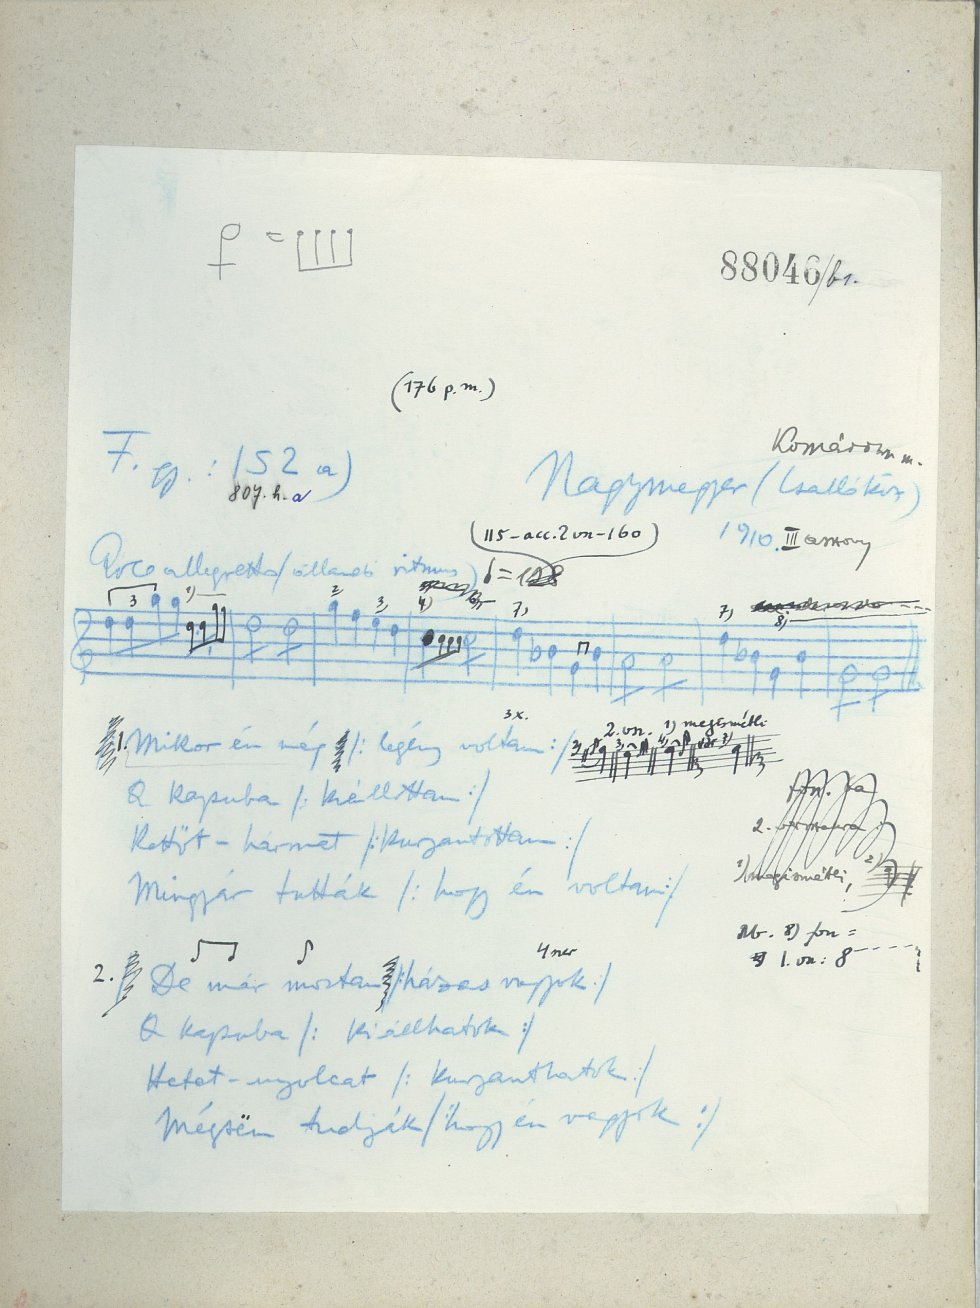 88046/b1.
(176 p.m.)
F. gp.: 152 a)
807. h. a
Komárom m.
Nagymegyer (Csallóköz)
1910. III asszony
Poco allegretto (állandó ritmus)
(115-acc. 2 vn-160)
3 1) 2 3, 4) 7, 7, 8,
3x.
1. Mikor én még /: legény voltam :/
2. vn. 1) megismétli
A kapuba /: kiállottam :/
Kettőt - hármat /: kurjantottam :/
2.
Mingyár tutták /: hogy én voltam :/
1) megismétli, 2)
Nb. 8) fon =
1. vn: 8
4szer
2. De már mostan /: házas vagyok :/
A kapuba /: kiállhatok :/
Hetet-nyolcat /: kurjanthatok :/
Mégsëm tudják /: hogy én vagyok :/